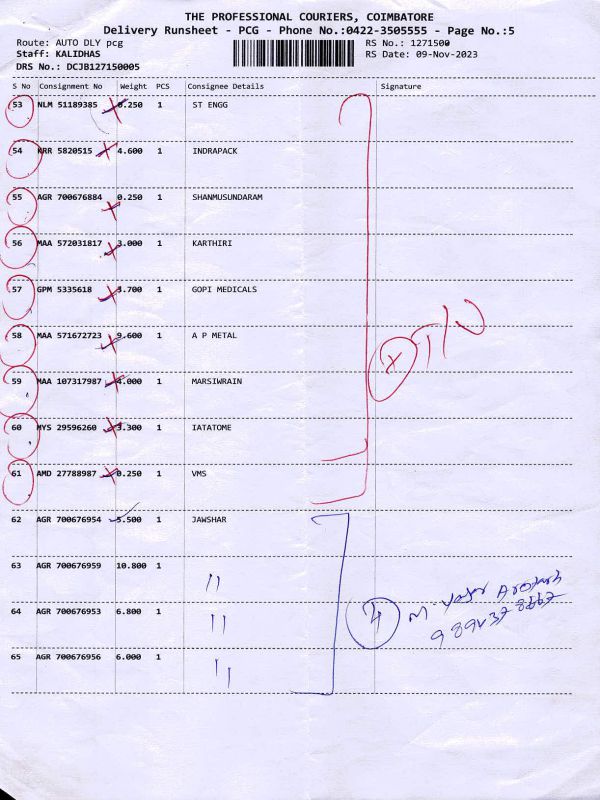 THE PROFESSIONAL COURIERS, COIMBATORE
Delivery Runsheet - PCG - Phone No.:0422-3505555 - Page No.:5
Route: AUTO DLY pcg RS No.: 1271500
Staff: KALIDHAS RS Date: 09-Nov-2023
DRS No.: DCJB127150005
S No Consignment No Weight PCS Consignee Details Signature
53 NLM 51189385 0.250 1 ST ENGG
54 KRR 5820515 4.600 1 INDRAPACK
55 AGR 700676884 0.250 1 SHANMUSUNDARAM
56 MAA 572031817 3.000 1 KARTHIRI
57 GPM 5335618 3.700 1 GOPI MEDICALS
58 MAA 571672723 9.600 1 A P METAL
59 MAA 107317987 4.000 1 MARSIWRAIN
60 MYS 29596260 3.300 1 IATATOME
61 AMD 27788987 0.250 1 VMS
62 AGR 700676954 5.500 1 JAWSHAR
63 AGR 700676959 10.800 1 "
64 AGR 700676953 6.800 1 "
4 M
65 AGR 700676956 6.000 1 "